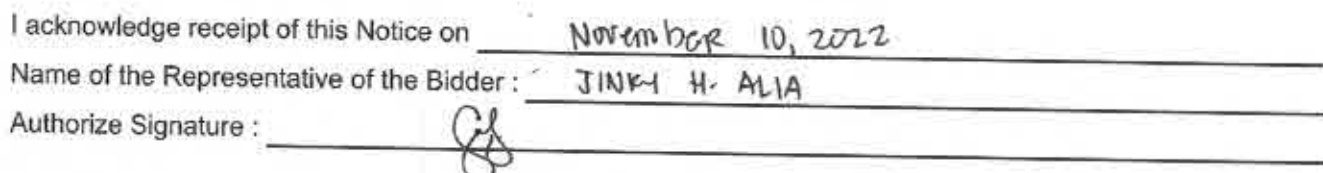 I acknowledge receipt of this Notice on November 10, 2022
Name of the Representative of the Bidder : JINKY H. ALIA
Authorize Signature :